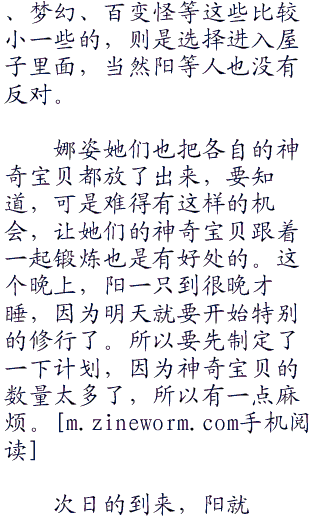 、梦幻、百变怪等这些比较
小一些的，则是选择进入屋
子里面，当然阳等人也没有
反对。
娜姿她们也把各自的神
奇宝贝都放了出来，要知
道，可是难得有这样的机
会，让她们的神奇宝贝跟着
一起锻炼也是有好处的。这
个晚上，阳一只到很晚才
睡，因为明天就要开始特别
的修行了。所以要先制定了
一下计划，因为神奇宝贝的
数量太多了，所以有一点麻
烦。[m.zineworm.com手机阅
读]
次日的到来，阳就